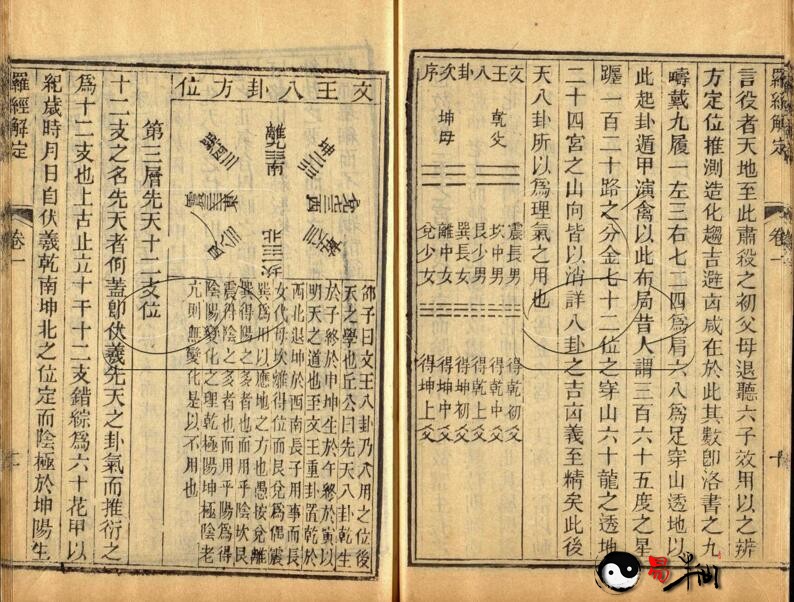 羅經解定
卷一
十
言役者天地至此肅役之初父母退聽六子效用以之辨
方定位推測造化趨吉避凶咸在於此其數卽洛書之九
疇戴九履一左三右七二四爲肩六八爲足穿山透地以
此起卦遁甲演禽以此布局昔人謂三百六十五度之星
躔一百二十路之分金七十二位之穿山六十龍之透地
二十四宮之山向皆以消詳八卦之吉凶義至精矣此後
天八卦所以爲理氣之用也
文王八卦次序
乾父
坤母
震長男
坎中男
艮少男
巽長女
離中女
兌少女
得乾初爻
得乾中爻
得乾上爻
得坤初爻
得坤中爻
得坤上爻
文王八卦方位
離南
坤
兌西
乾
坎北
艮
震東
巽
邵子曰文王八卦乃入用之位後
天之學也丘公曰先天八卦乾生
於子終於申坤生於午終於寅以
明天之道也至文王重卦置乾於
西北退坤於西南長子用事而長
女代母坎離得位而艮兌爲偶震
巽爲用以應地之方也愚按兌離
巽得陽之多者也而用乎陰坎艮
震得陰之多者也而用乎陽爲得
陰陽變化之理乾極陽坤極陰老
亢則無變化是以不用也
第三層先天十二支位
十二支之名先天者何蓋卽伏羲先天之卦氣而推衍之
爲十二支也上古止立十干十二支錯綜爲六十花甲以
紀歲時月日自伏羲乾南坤北之位定而陰極於坤陽生
羅經解定
卷一